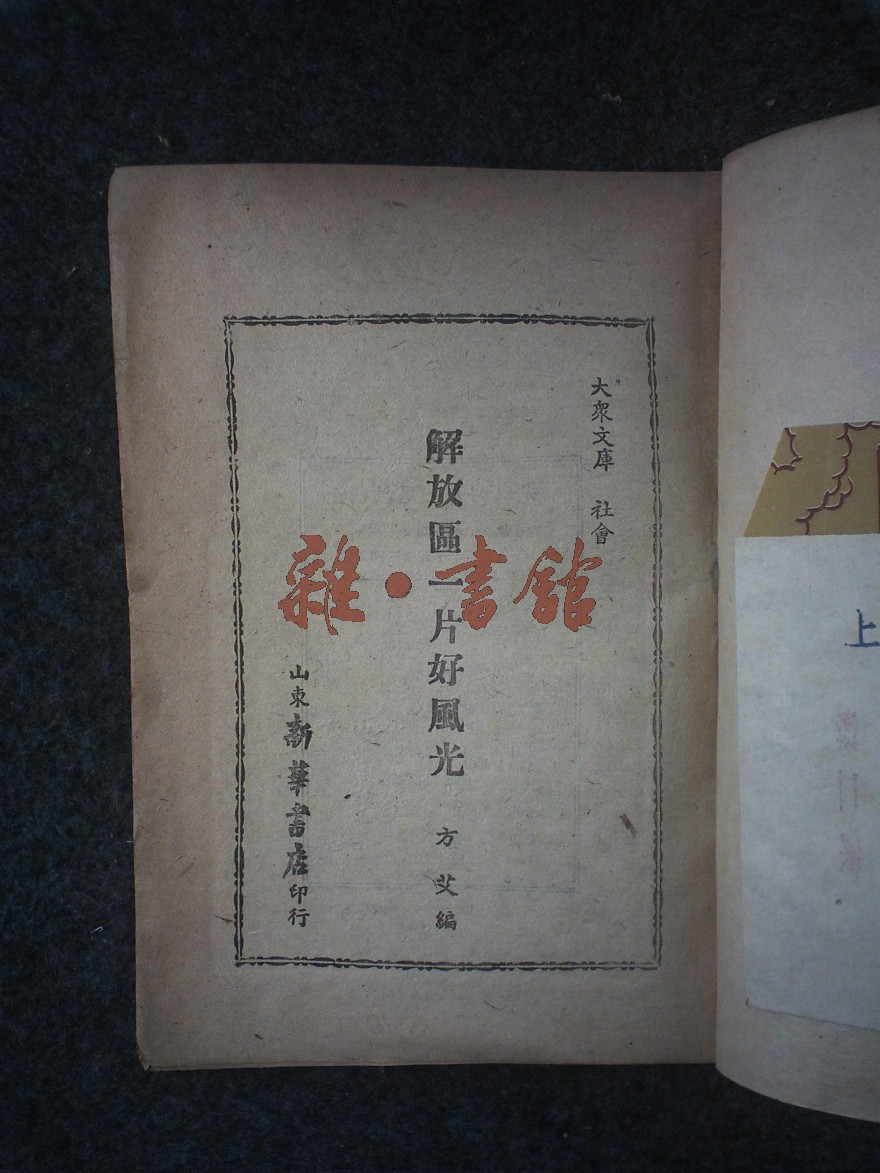 大衆文庫 社會
解放區一片好風光
方艾編
山東新華書店印行
雜·書館
上